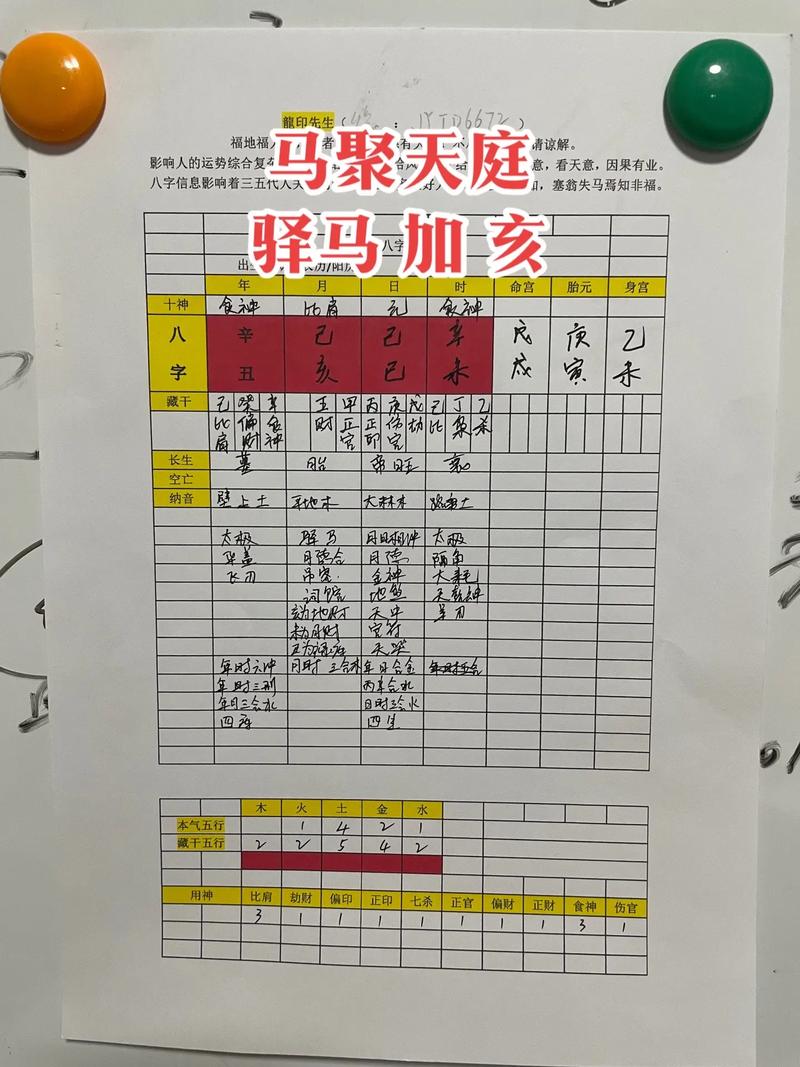 龍印先生(
福地福人 者 有 请谅解。
影响人的运势综合复杂 给 意，看天意，因果有业。
八字信息影响着三五代人 如，塞翁失马焉知非福。
马聚天庭
驿马 加 亥
八字
年 月 日 时 命宫 胎元 身宫
十神 食神 比肩 元 食神
八字 辛 己 己 辛 戊 庚 乙
丑 亥 巳 未 戌 寅 未
藏干 己 癸 辛 壬 甲 丙 庚 戊 己 丁 乙
比肩 偏财 食神 财 正官 正印 伤官 劫 比 枭 杀
长生 墓 胎 帝旺
空亡
纳音 壁上土 平地木 大林木 路旁土
太极 驿马 月日相冲 太极
华盖 月德合 月德 隔角
飞刃 吊客 金神 大耗
词馆 地煞
羊刃
年时六冲 月时三合木 年日合金
年时三刑 丙辛合水
年月三会水 日时三会火
四库 四生
木 火 土 金 水
本气五行 1 4 2 1
藏干五行 2 2 5 4 2
用神 比肩 劫财 偏印 正印 七杀 正官 偏财 正财 食神 伤官
3 1 1 1 1 1 1 1 3 1